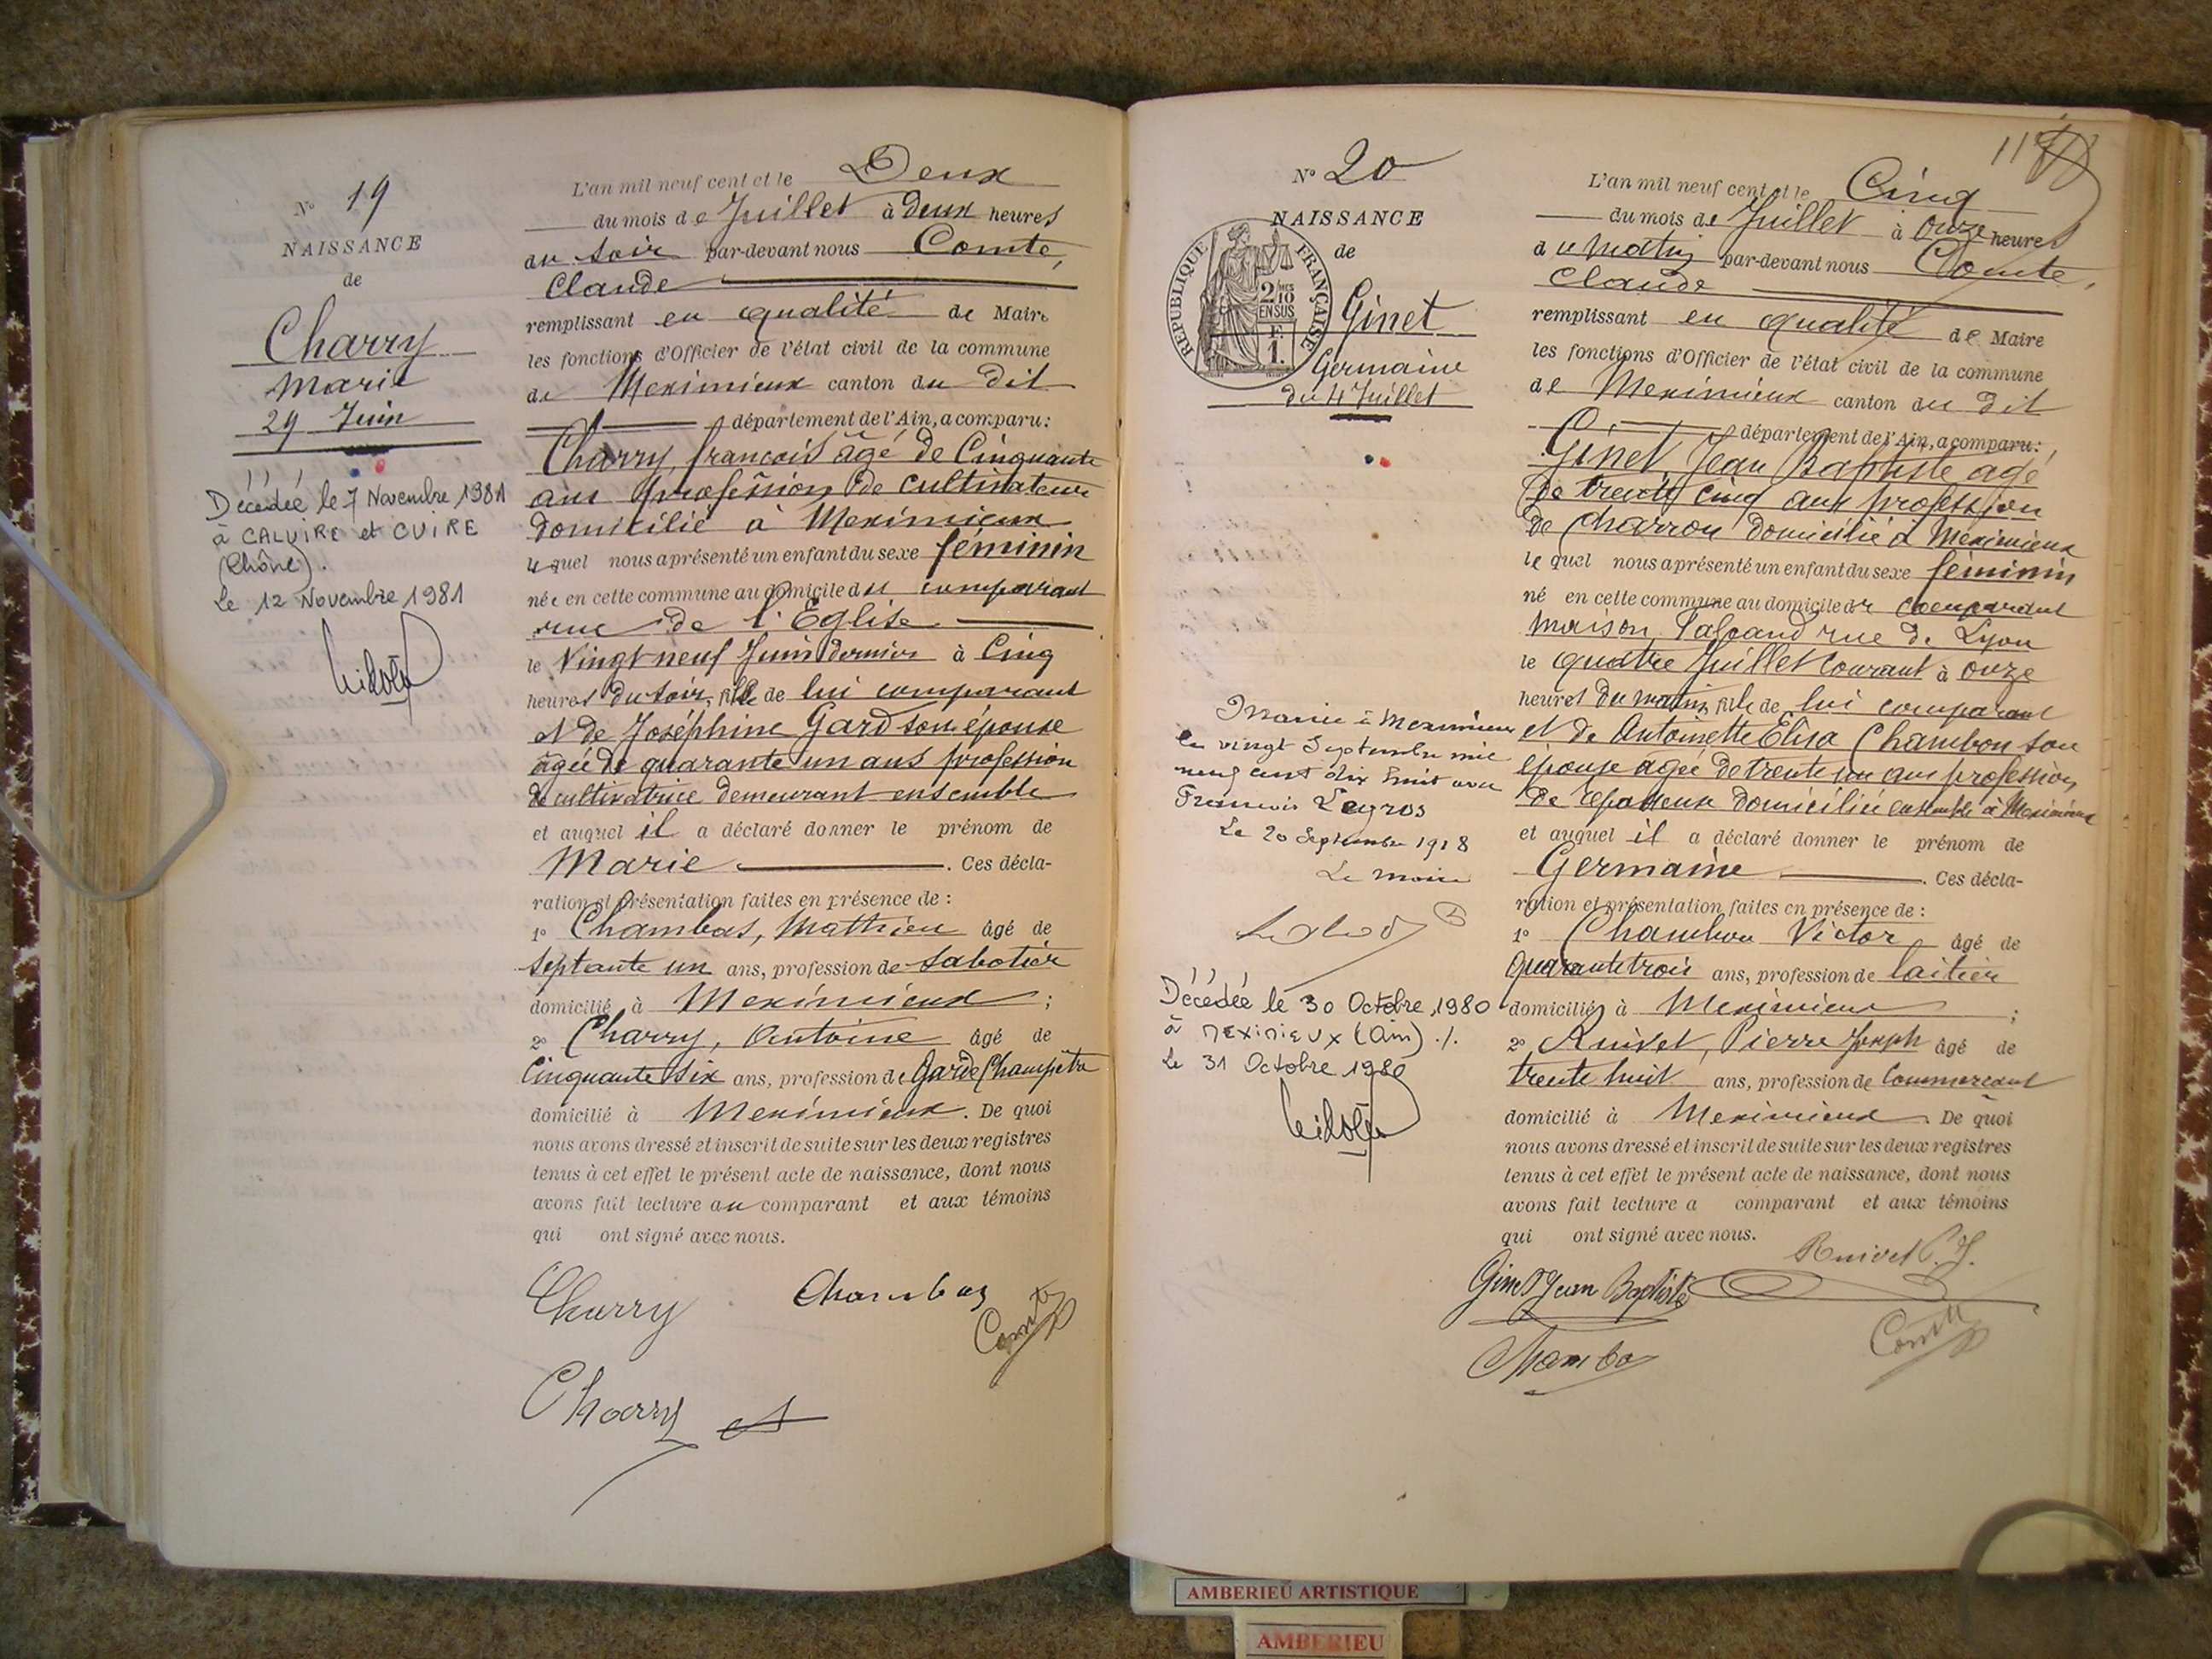 N° 19
NAISSANCE
de
Charry
Marie
29 Juin
Décédée le 7 Novembre 1981
à CALUIRE et CUIRE
(Rhône).
Le 12 Novembre 1981
L'an mil neuf cent et le Deux
du mois de Juillet à deux heures
du soir par-devant nous Comte,
Claude
remplissant en qualité de Maire
les fonctions d'Officier de l'état civil de la commune
de Meximieux canton du dit
département de l'Ain, a comparu:
Charry, françois âgé de Cinquante
ans profession de cultivateur
domicilié à Meximieux
lequel nous a présenté un enfant du sexe féminin
née en cette commune au domicile du comparant
rue de l'Eglise
le Vingt neuf Juin dernier à Cinq
heures du soir, fille de lui comparant
et de Joséphine Gard son épouse
âgée de quarante un ans profession
de cultivatrice demeurant ensemble
et auquel il a déclaré donner le prénom de
Marie . Ces décla-
ration et présentation faites en présence de :
1° Chambas, Mathieu âgé de
septante un ans, profession de sabotier
domicilié à Meximieux ;
2° Charry, Antoine âgé de
Cinquante six ans, profession de Garde Champêtre
domicilié à Meximieux. De quoi
nous avons dressé et inscrit de suite sur les deux registres
tenus à cet effet le présent acte de naissance, dont nous
avons fait lecture au comparant et aux témoins
qui ont signé avec nous.
Charry Chambas
Comte
Charry
N° 20
NAISSANCE
de
RÉPUBLIQUE FRANÇAISE
2/10 EN SUS
F. 1.
Ginet
Germaine
du 4 Juillet
Mariée à Meximieux
le vingt Septembre mil
neuf cent dix huit avec
François Leyros
Le 20 Septembre 1918
Le maire
Décédée le 30 Octobre 1980
à MEXIMIEUX (Ain) ./.
Le 31 Octobre 1980
11
L'an mil neuf cent et le Cinq
du mois de Juillet à onze heures
du matin par-devant nous Comte,
Claude
remplissant en qualité de Maire
les fonctions d'Officier de l'état civil de la commune
de Meximieux canton du dit
département de l'Ain, a comparu:
Ginet, Jean Baptiste agé
de trente cinq ans profession
de charron domicilié à Meximieux
lequel nous a présenté un enfant du sexe féminin
né en cette commune au domicile du comparant
maison rue de Lyon
le quatre Juillet courant à onze
heures du matin, fille de lui comparant
et de Antoinette Elisa Chambon son
épouse agée de trente un ans profession
de domiciliée ensemble à Meximieux
et auquel il a déclaré donner le prénom de
Germaine . Ces décla-
ration et présentation faites en présence de :
1° Chambon Victor âgé de
quarante trois ans, profession de laitier
domicilié à Meximieux ;
2° Ruivet, Pierre Joseph âgé de
trente huit ans, profession de Commercant
domicilié à Meximieux. De quoi
nous avons dressé et inscrit de suite sur les deux registres
tenus à cet effet le présent acte de naissance, dont nous
avons fait lecture a comparant et aux témoins
qui ont signé avec nous.
Ruivet P. J.
Ginet Jean Baptiste
Comte
AMBERIEU ARTISTIQUE
AMBERIEU